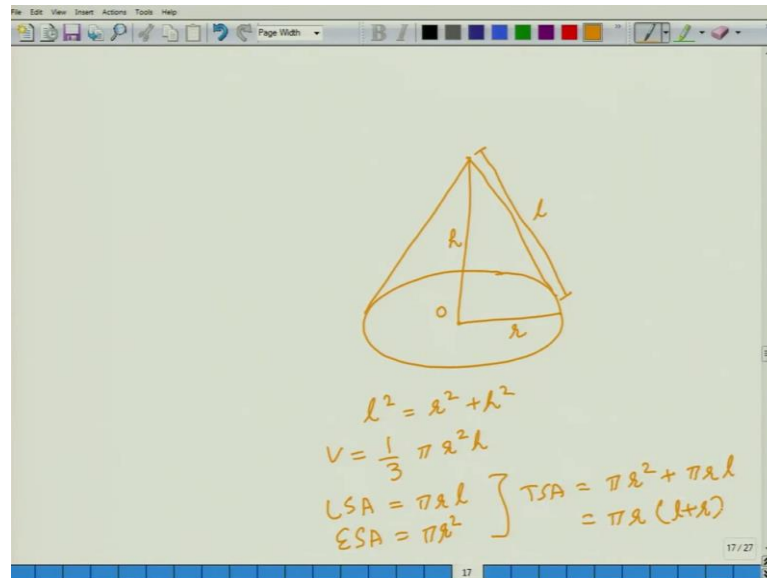 File Edit View Insert Actions Tools Help
Page Width B I
l
h
O
r
l² = r² + h²
V = 1/3 πr²h
LSA = πrl ] TSA = πr² + πrl
ESA = πr² = πr (l+r)
17 / 27
17